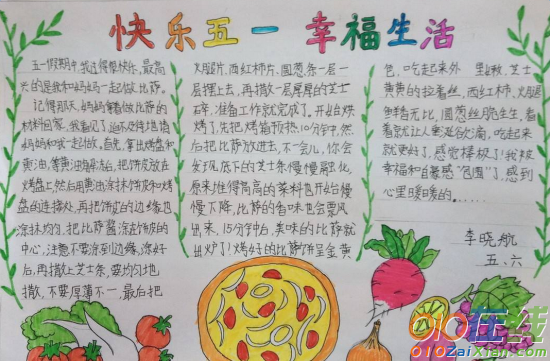 快乐五一 幸福生活
五一假期中,我过得很快乐,最高
兴的是我和妈妈一起做比萨。
记得那天,妈妈拿着做比萨的
材料回家,我看见了,迫不及待地请
妈妈和我一起做。首先,拿出烤盘和
黄油,等黄油解冻后,把饼皮放在
烤盘上,然后用黄油涂抹饼皮和烤
盘的连接处,再把饼的边缘也
涂抹均匀,把比萨酱涂在饼皮的
中心,注意不要涂到边缘,涂好
后,再撒上芝士条,要均匀地
撒,不要厚薄不一,最后把
火腿片、西红柿片、圆葱条一层一
层摆上去,再撒一层厚厚的芝士
碎,准备工作就完成了。开始烘
烤了,先把烤箱预热10分钟,然
后把比萨放进去,不一会儿,你会
发现底下的芝士条慢慢融化,
原来堆得高高的菜料也开始慢
慢下降,比萨的香味也会飘
出来,15分钟后,美味的比萨就
出炉了!烤好的比萨饼呈金黄
色,吃起来外 里软,芝士
黄黄的拉着丝,西红柿、火腿
鲜香无比,圆葱丝脆生生,看
着就让人垂涎欲滴,吃起来
就更好了,感觉棒极了!我被
幸福和自豪感“包围”了,感到
心里暖暖的……
李晓航
五、六
010在线
010zaixian.com